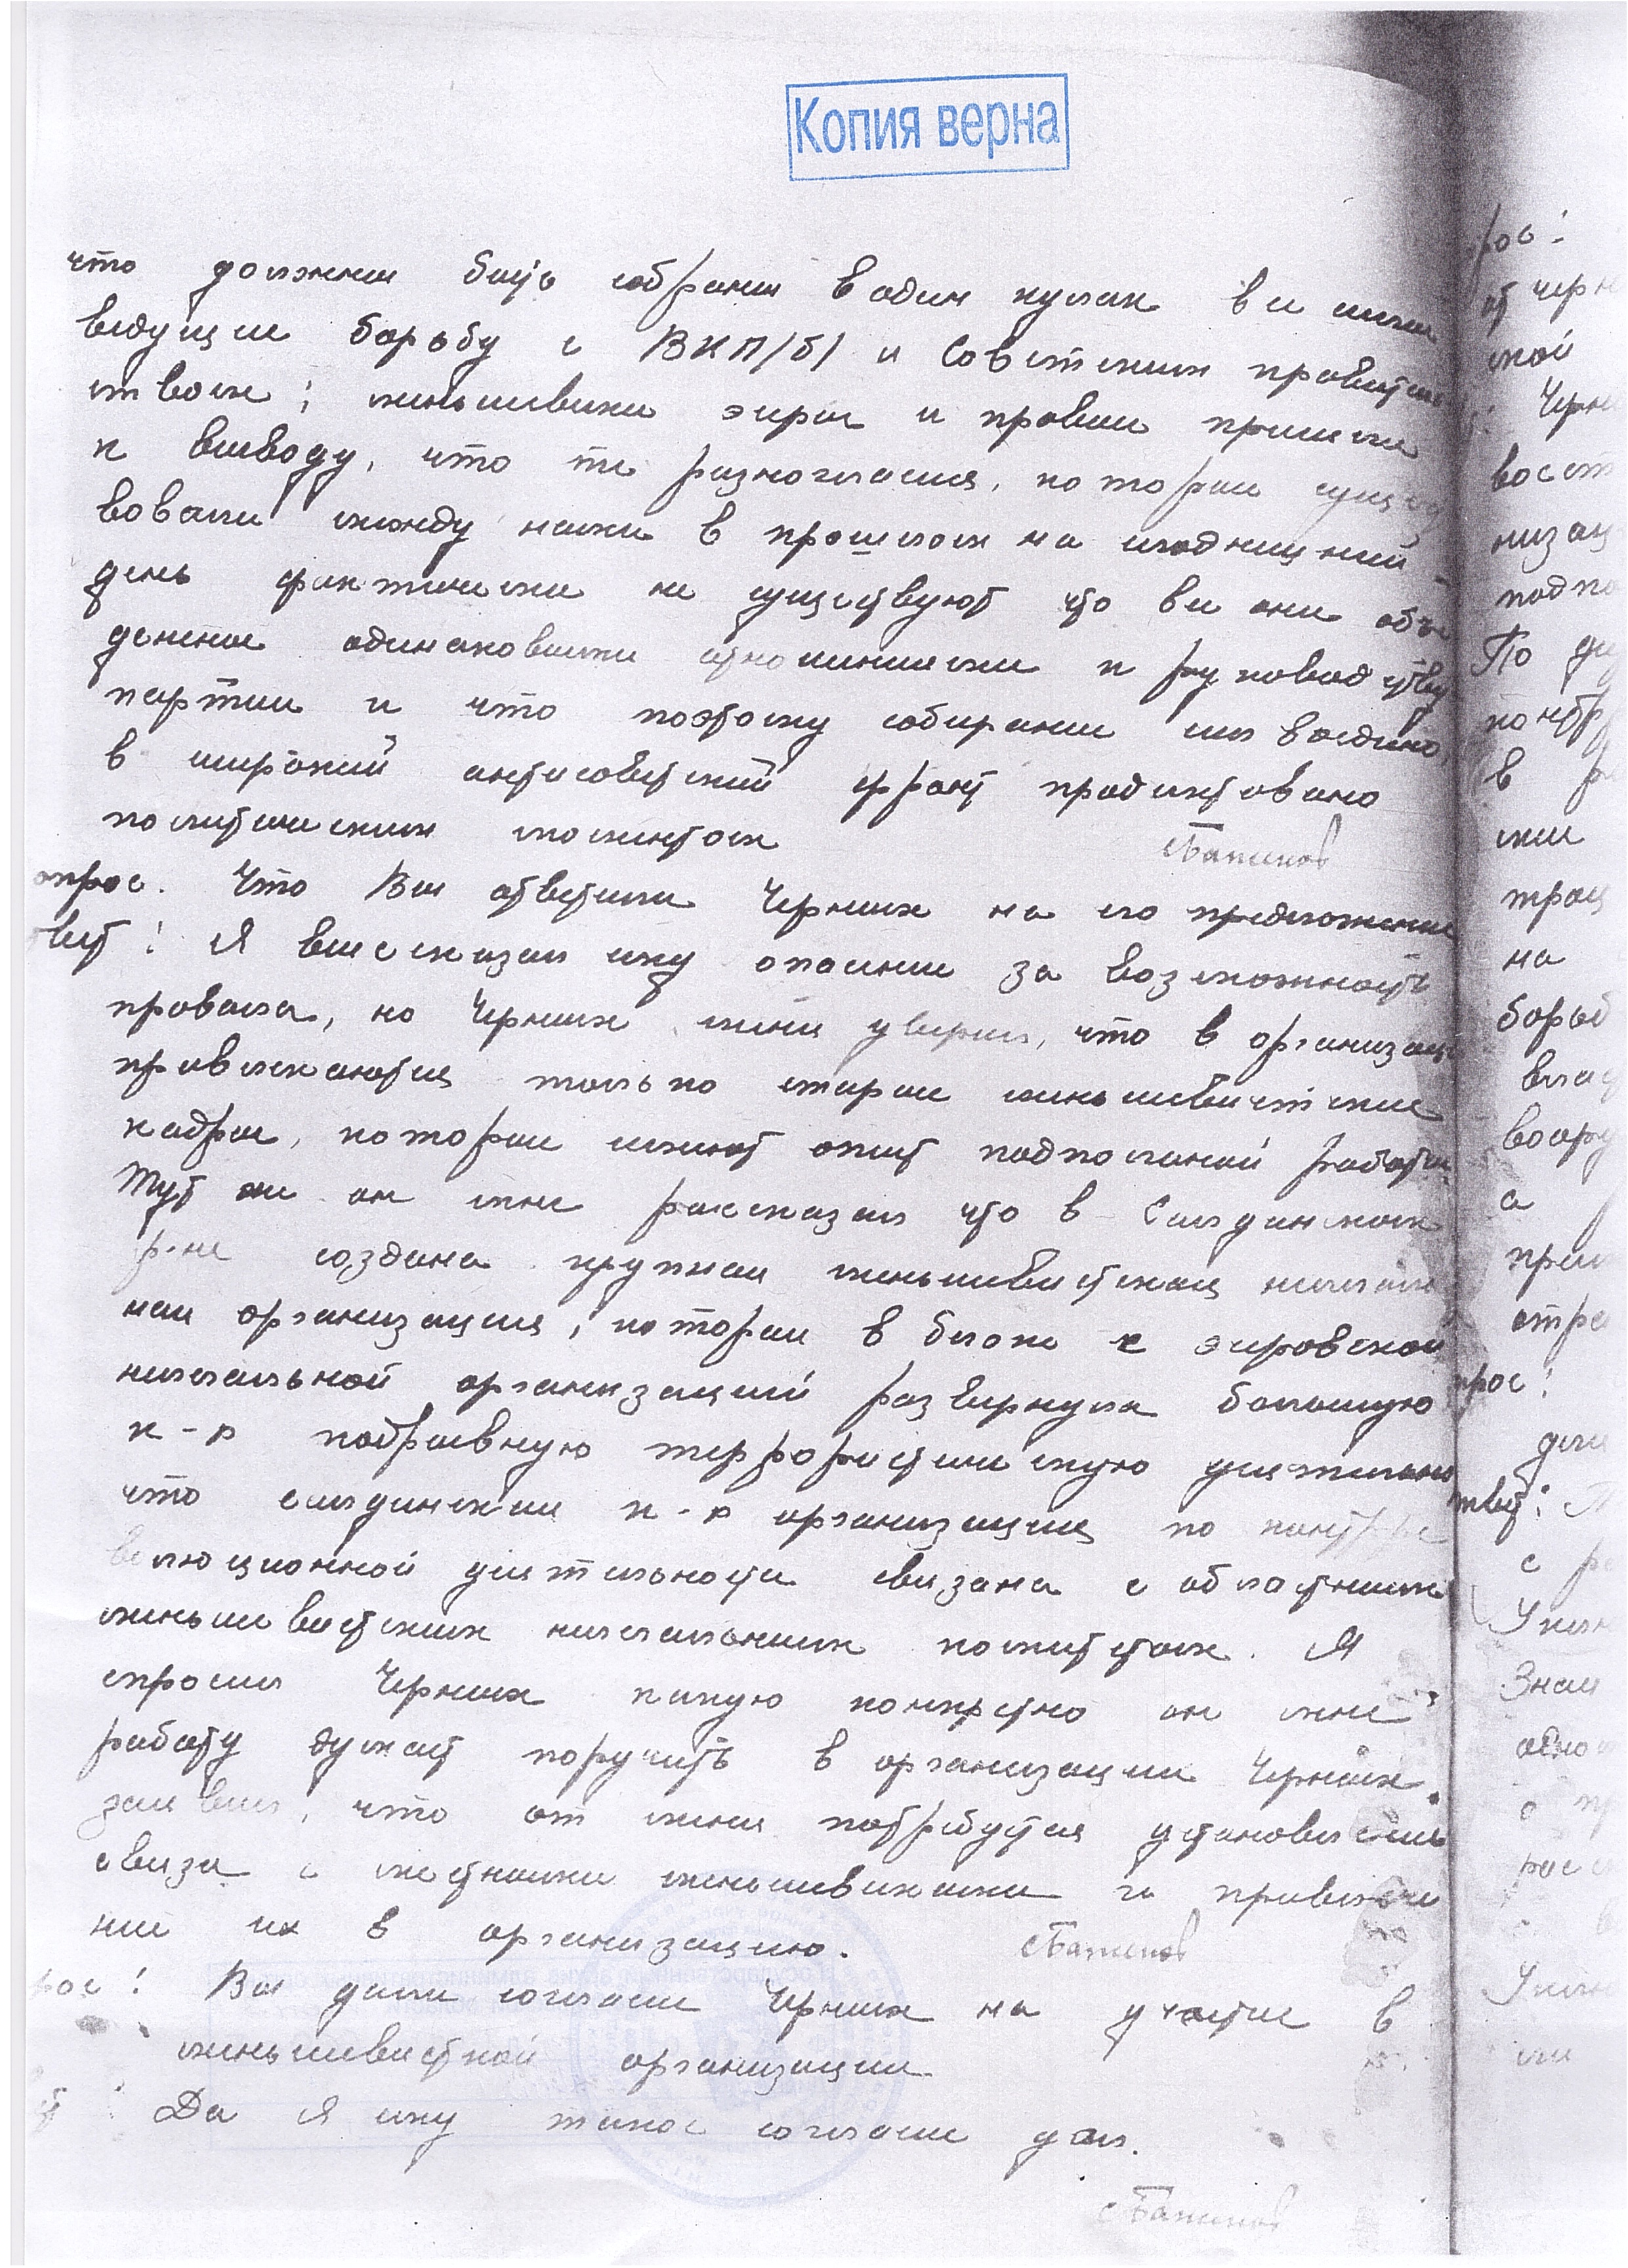 Копия верна
что должны быть собраны в один кулак все силы
ведущие борьбу с ВКП/б/ и Советским правитель
ством; меньшевики эсеры и правые пришли
к выводу, что те разногласия, которые сущест
вовали между ними в прошлом на сегодняшний
день фактически не существуют что все они объе
денены одинаковыми отношениями к руководству
партии и что поэтому собирание сил воедино
в широкий антисоветский фронт продиктовано
политическим моментом
опрос. Что Вы ответили Черных на его предложение
твет: Я высказал ему опасние за возможность
провала, но Черных меня уверил, что в организац
привлекаются только старые меньшевистские
кадры, которые имеют опыт подпольной работы.
Тут же он мне рассказал что в Слюдянском
р-не создана крупная меньшевистская нелегаль
ная организация, которая в блоке с эсеровской
нелегальной организацией развернула большую
к-р подрывную террористическую деятельно
что слюдянская к-р организация по контрре
волюционной деятельности связана с областным
меньшевистским нелегальным комитетом. Я
спросил Черных какую конкретно он мне
работу думает поручить в организации Черных
заявил, что от меня потребуется установление
связи с местными меньшевиками и привлече
ние их в организацию.
рос: Вы дали согласие Черных на участие в
меньшевистской организации.
т: Да я ему такое согласие дал.
рос:
от черн
ской
Черн
восст
низац
подпо
По
контр
в
ские
на
борьб
влас
воору
а
прос:
твет:
с
Знаю